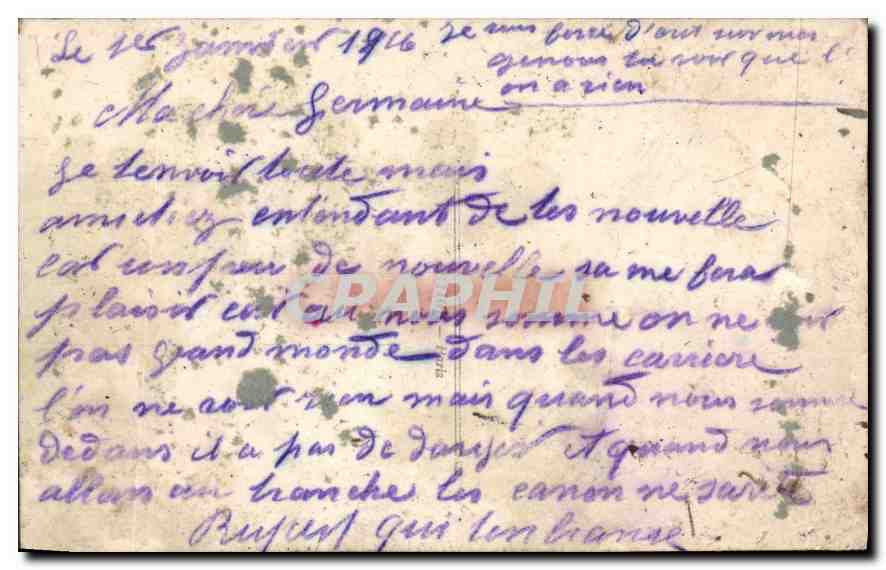 Le 1er 1916 je suis d'
genoux tu voir que l'
on a rien
Ma chère Germaine
Je t'envoit toute mais
amitiez entendant de tes nouvelle
car un peu de nouvelle sa me feras
plaisir car au nous somme on ne voit
pas grand monde dans les carriere
l'on ne voit rien mais quand nous somme
dedans il a pas de danger et quand nous
allons au tranche les canon ne
qui t'embrasse
CRAPHIL
Paris